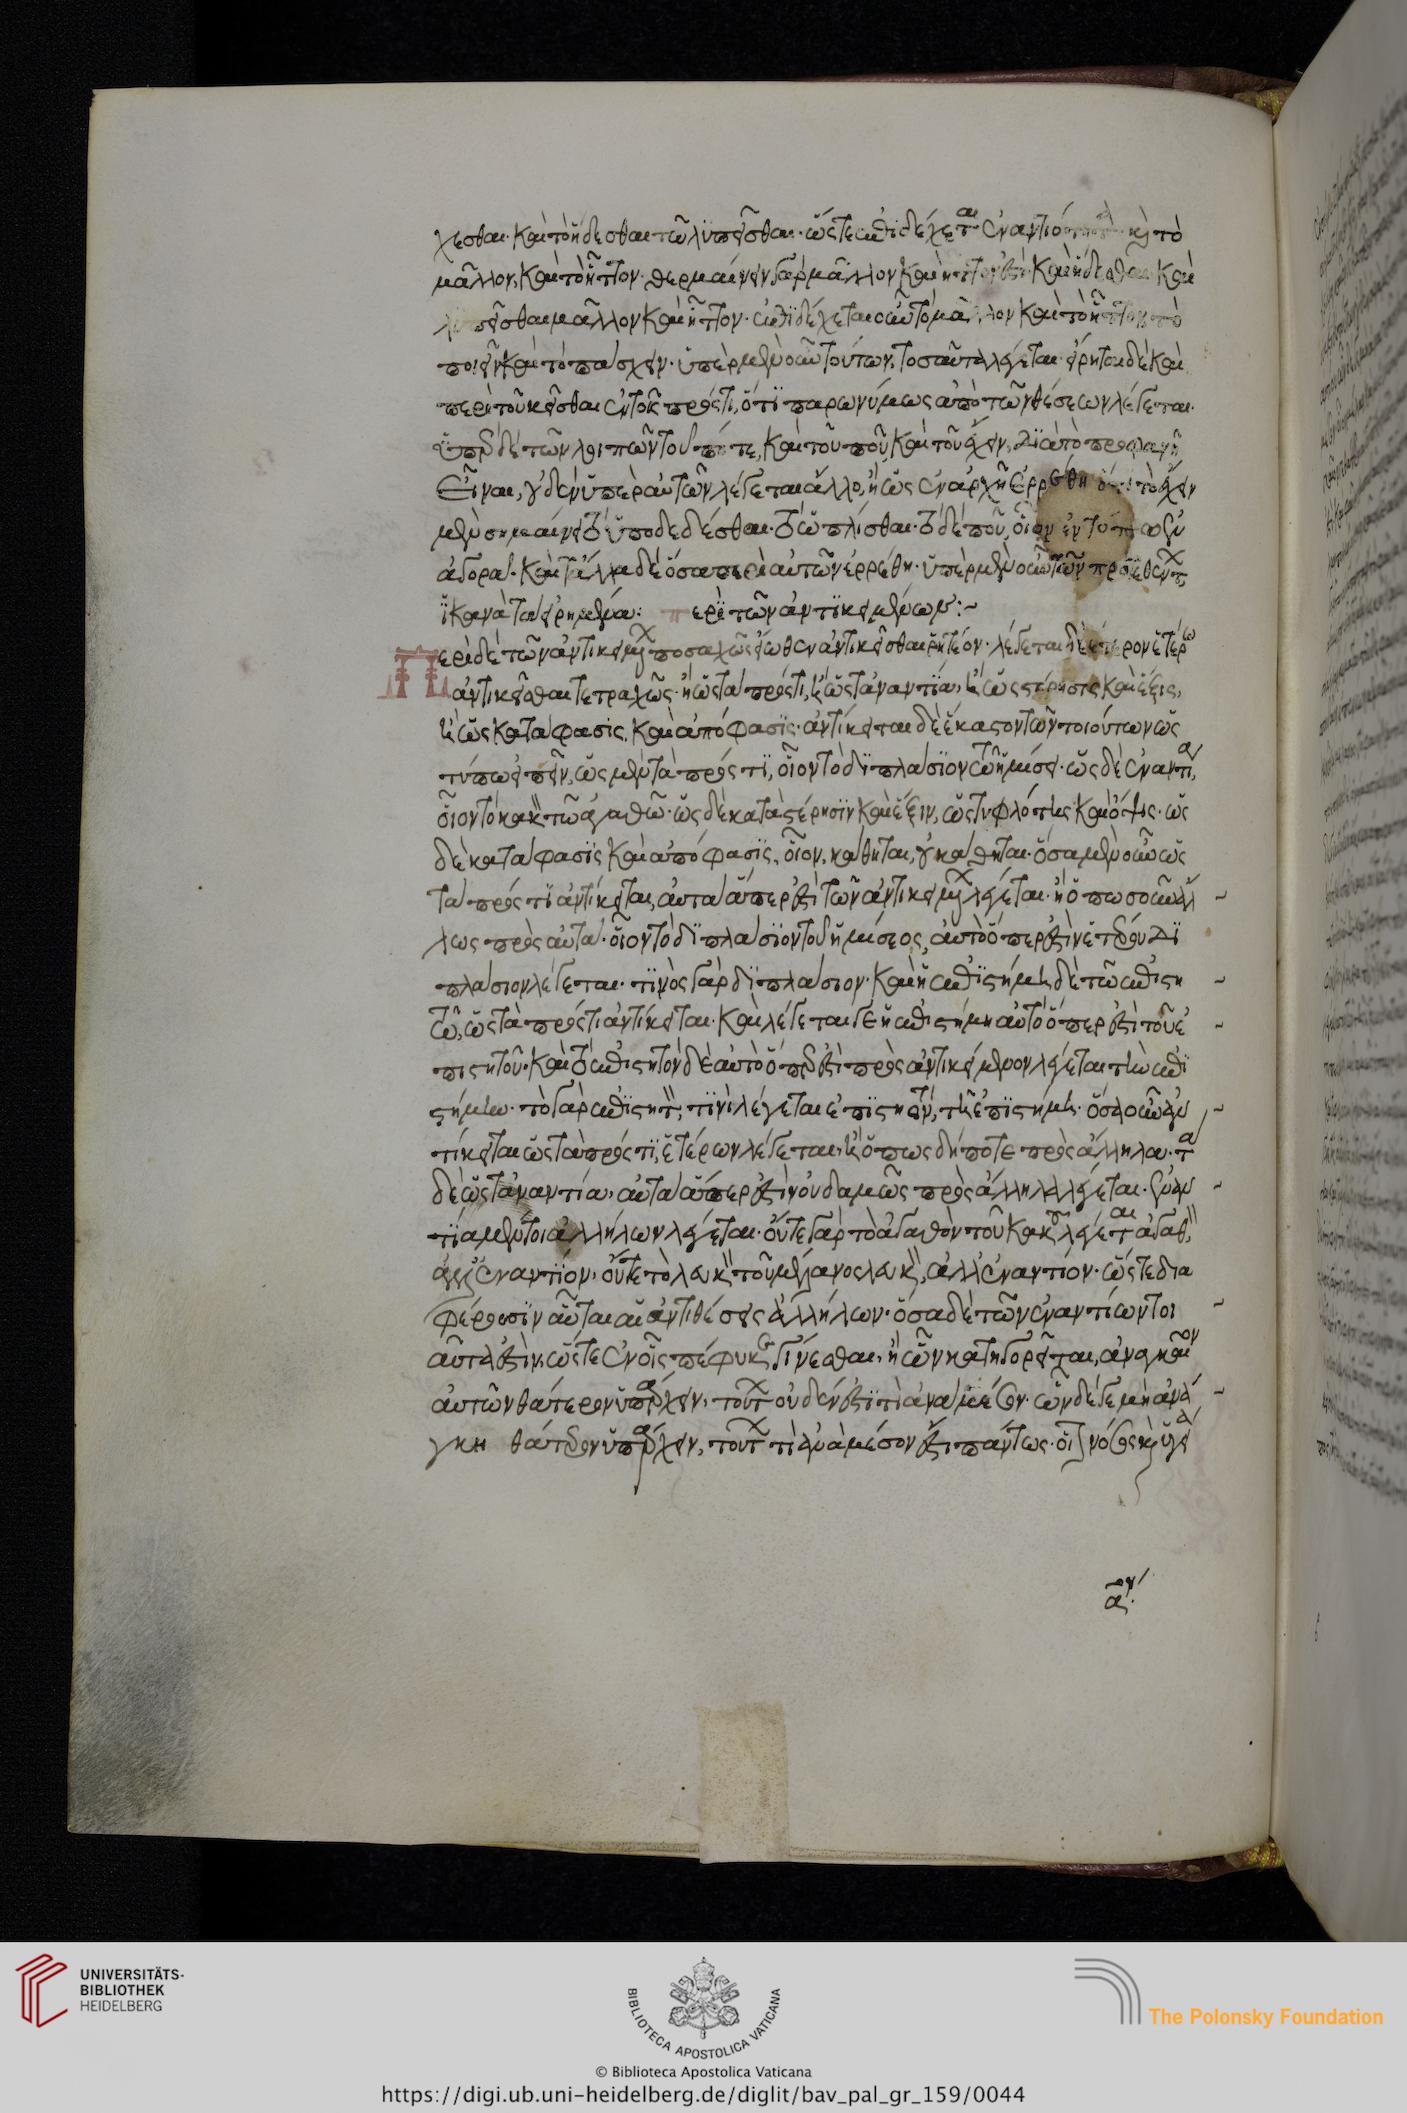 χεσθαι· καὶ τὸ ἥδεσθαι τῶ λυπεῖσθαι· ὥστε ἐπιδέχεται ἐναντιότητα· καὶ τὸ
μᾶλλον, καὶ τὸ ἧττον· θερμαίνειν γὰρ μᾶλλον καὶ ἧττον ἐστί· καὶ ἥδεσθαι καὶ
λυπεῖσθαι μᾶλλον καὶ ἧττον· ἐπιδέχεται οὖν τὸ μᾶλλον καὶ τὸ ἧττον τὸ
ποιεῖν καὶ τὸ πάσχειν· ὑπὲρ μὲν οὖν τούτων, τοσαῦτα λέγεται· εἴρηται δὲ καὶ
περὶ τοῦ κεῖσθαι ἐν τοῖς πρός τι, ὅτι παρωνύμως ἀπὸ τῶν θέσεων λέγεται·
ὑπὲρ δὲ τῶν λοιπῶν τοῦ πότε, καὶ τοῦ ποῦ καὶ τοῦ ἔχειν, διὰ τὸ προφανῆ
εἶναι, οὐδὲν ὑπὲρ αὐτῶν λέγεται ἄλλο, ἢ ὡς ἐν ἀρχῆ ἐρρέθη ὅτι τὸ ἔχειν
μὲν σημαίνει τὸ ὑποδεδέσθαι· τὸ ὡπλίσθαι· τὸ δέ που, οἷον ἐν
ἀγορᾶ· καὶ τἄλλα δὲ ὅσα περὶ αὐτῶν ἐρρέθη· ὑπὲρ μὲν οὖν τῶν προτεθέντων
ἱκανὰ τὰ εἰρημένα: περὶ τῶν ἀντικειμένων:~
Περὶ δὲ τῶν ἀντικειμένων ποσαχῶς εἴωθεν ἀντικεῖσθαι ῥητέον· λέγεται δὲ ἕτερον ἑτέρω
ἀντικεῖσθαι τετραχῶς· ἢ ὡς τὰ πρός τι, ἢ ὡς τἀναντία, ἢ ὡς στέρησις καὶ ἕξις,
ἢ ὡς κατάφασις, καὶ ἀπόφασις· ἀντίκειται δὲ ἕκαστον τῶν τοιούτων ὡς
τύπω εἰπεῖν, ὡς μὲν τὰ πρός τι, οἷον τὸ διπλάσιον τῶ ἡμίσει· ὡς δὲ ἐναντία,
οἷον τὸ κακὸν τῶ ἀγαθῶ· ὡς δὲ κατὰ στέρησιν καὶ ἕξιν, ὡς τυφλότης καὶ ὄψις· ὡς
δὲ κατάφασις καὶ ἀπόφασις, οἷον, κάθηται, οὐ κάθηται· ὅσα μὲν οὖν ὡς
τὰ πρός τι ἀντίκειται, αὐτὰ ἅπερ ἐστὶ τῶν ἀντικειμένων λέγεται· ἢ ὁπωσοῦν ἄλ
λως πρὸς αὐτά· οἷον τὸ διπλάσιον τοῦ ἡμίσεος, αὐτὸ ὅπερ ἐστὶν ἑτέρου δι
πλάσιον λέγεται· τινὸς γὰρ διπλάσιον· καὶ ἡ ἐπιστήμη δὲ τῶ ἐπιστη
τῶ, ὡς τὰ πρός τι ἀντίκειται· καὶ λέγεταί γε ἡ ἐπιστήμη αὐτὸ ὅπερ ἐστὶ τοῦ ἐ
πιστητοῦ· καὶ τὸ ἐπιστητὸν δὲ αὐτὸ ὅπερ ἐστὶ πρὸς ἀντικείμενον λέγεται τὴν ἐπι
στήμην· τὸ γὰρ ἐπιστητὸν, τινὶ λέγεται ἐπιστητόν, τῆ ἐπιστήμη· ὅσα οὖν ἀν
τίκειται ὡς τὰ πρός τι, ἑτέρων λέγεται, ἢ ὅπως δήποτε πρὸς ἄλληλα· τὰ
δὲ ὡς τἀναντία, αὐτὰ ἅπερ ἐστὶν οὐδαμῶς πρὸς ἄλληλα λέγεται· ἐναν
τία μέντοι ἀλλήλων λέγεται· οὔτε γὰρ τὸ ἀγαθὸν τοῦ κακοῦ λέγεται ἀγαθὸν,
ἀλλ' ἐναντίον, οὔτε τὸ λευκὸν τοῦ μέλανος λευκὸν, ἀλλ' ἐναντίον· ὥστε δια
φέρουσιν αὗται αἱ ἀντιθέσεις ἀλλήλων· ὅσα δὲ τῶν ἐναντίων τοι
αῦτα ἐστὶν, ὥστε ἐν οἷς πέφυκε γίνεσθαι, ἢ ὧν κατηγορεῖται, ἀναγκαῖον
αὐτῶν θάτερον ὑπάρχειν, τούτων οὐδέν ἐστί τι ἀνὰ μέσον· ὧν δέ γε μὴ ἀνά
γκη θάτερον ὑπάρχειν, τούτων τὶ ἀνὰ μέσον ἐστὶ πάντως· οἷον νόσος καὶ ὑγεί